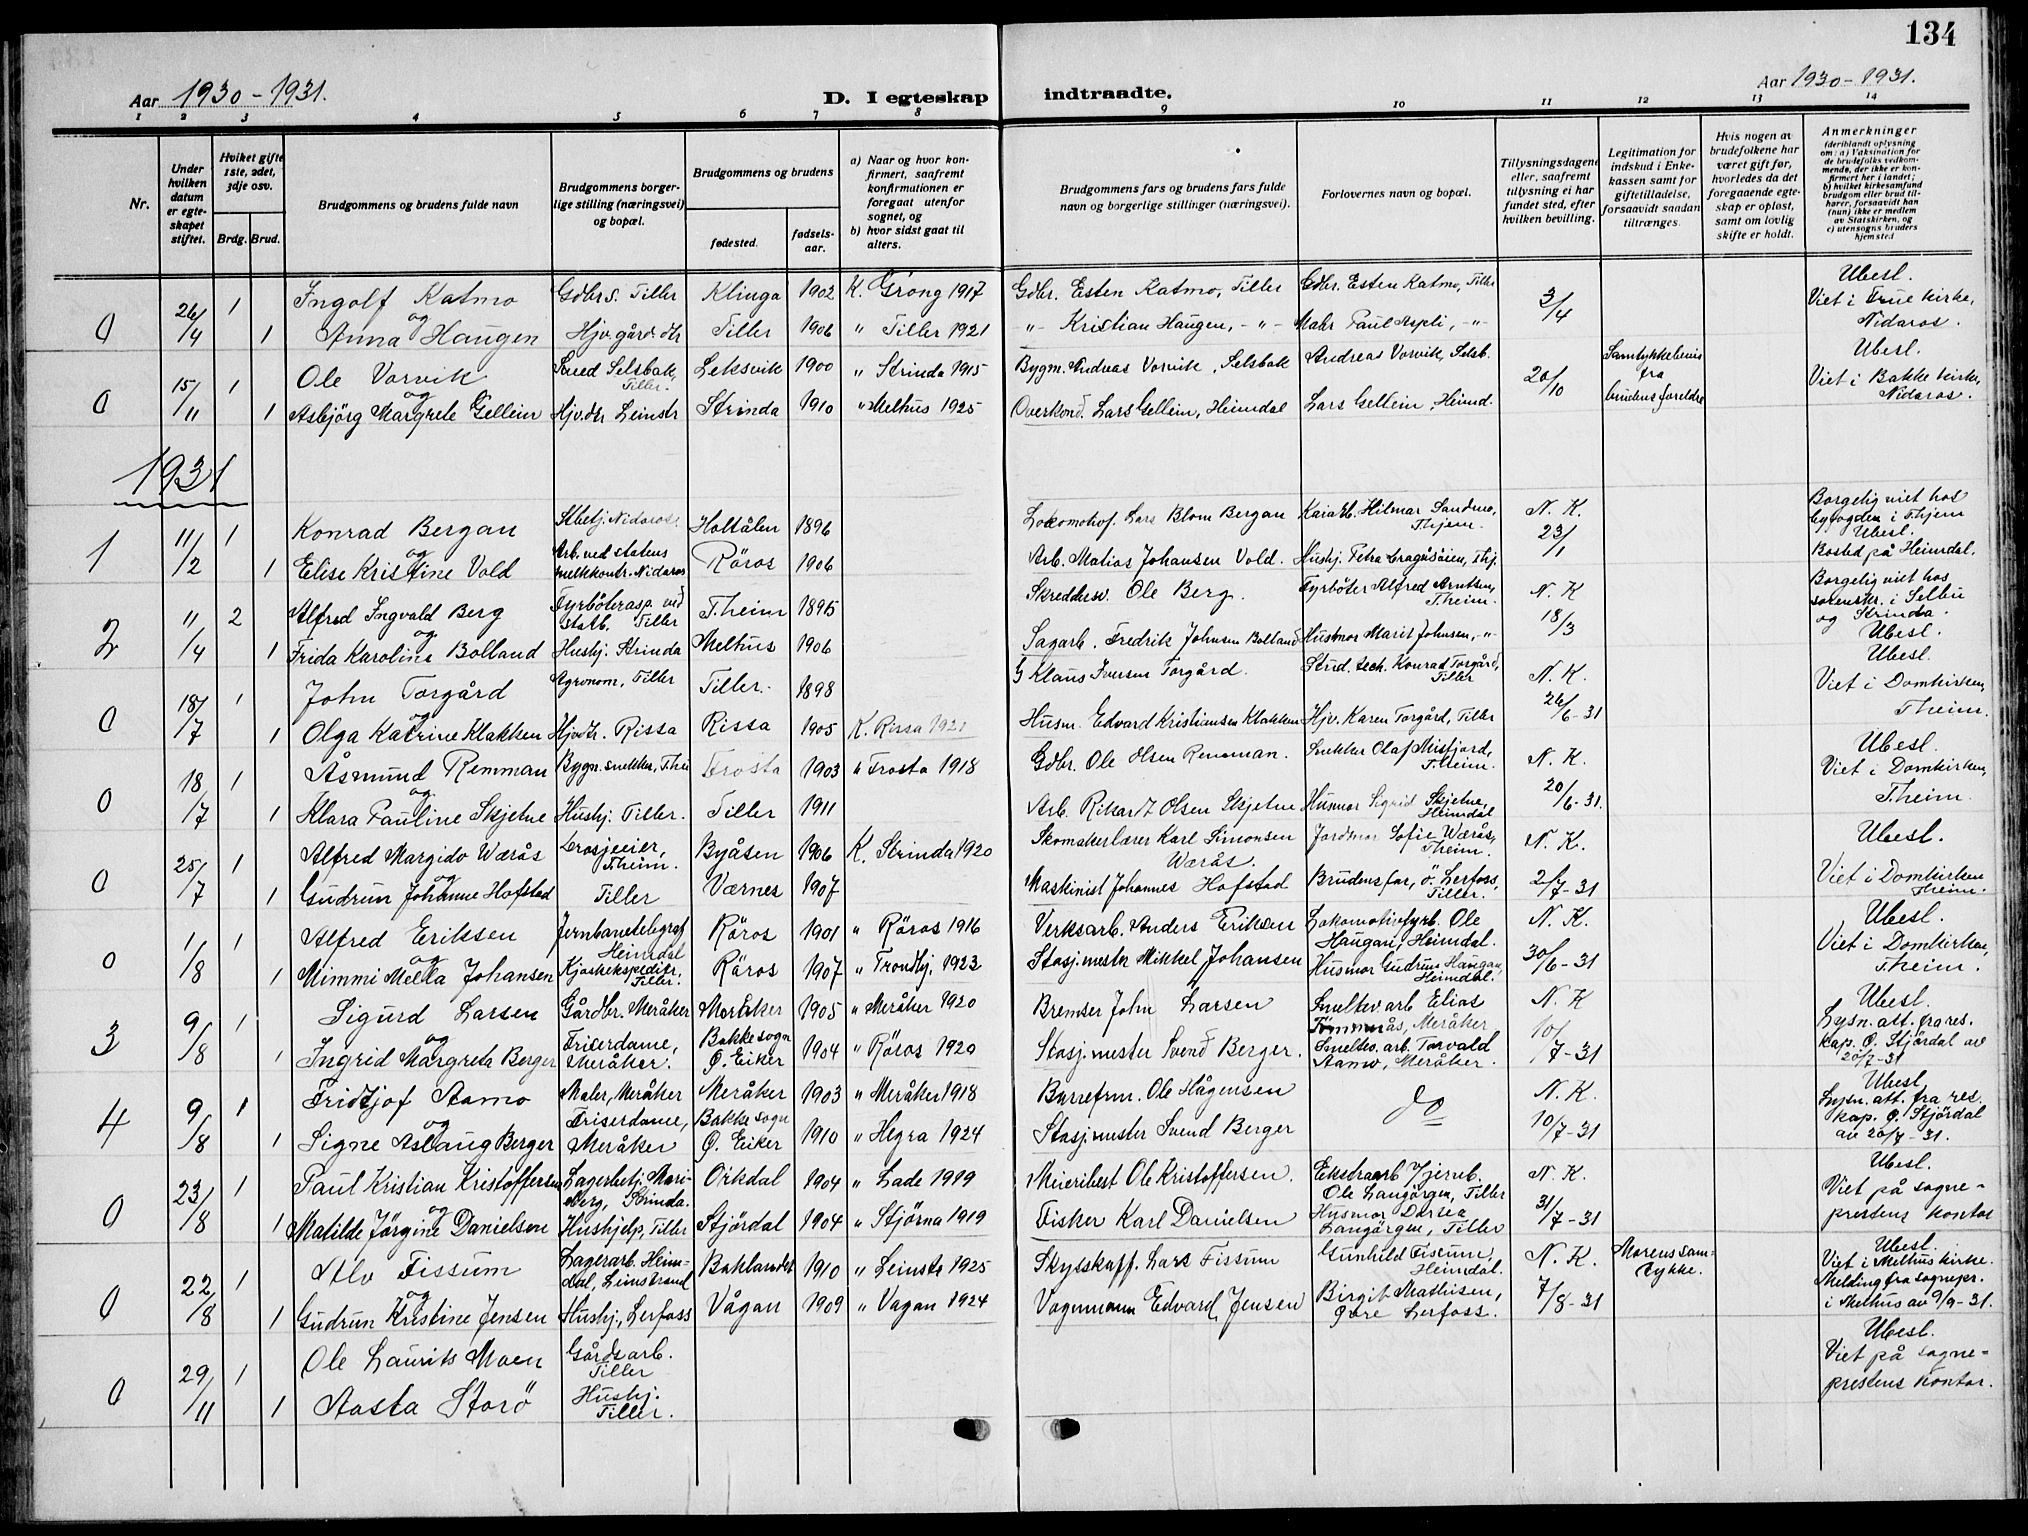 134
Aar 1930-1931.
D. I egteskap indtraadte.
Aar 1930-1931.
1 2 3 4 5 6 7 8 9 10 11 12 13 14
Nr.
Under hvilken datum er egteskapet stiftet.
Hvilket gifte 1ste, 2det, 3dje osv.
Brdg. Brud.
Brudgommens og brudens fulde navn
Brudgommens borgerlige stilling (næringsvei) og bopæl.
Brudgommens og brudens
fødested.
fødselsaar.
a) Naar og hvor konfirmert, saafremt konfirmationen er foregaat utenfor sognet, og
b) hvor sidst gaat til alters.
Brudgommens fars og brudens fars fulde navn og borgerlige stillinger (næringsvei).
Forlovernes navn og bopæl.
Tillysningsdagene eller, saafremt tillysning ei har fundet sted, efter hvilken bevilling.
Legitimation for indskud i Enkekassen samt for giftetilladelse, forsaavidt saadan tiltrænges.
Hvis nogen av brudefolkene har været gift før, hvorledes da det foregaaende egteskap er opløst, samt om lovlig skifte er holdt.
Anmerkninger (deriblandt oplysning om: a) Vaksination for de brudefolks vedkommende, der ikke er konfirmert her i landet; b) hvilket kirkesamfund brudgom eller brud tilhører, forsaavidt han (hun) ikke er medlem av Statskirken, og c) utensogns bruders hjemsted
0 26/4 1 Ingolf Katmo Gdbrs. Tiller Klinga 1902 K. Grong 1917 Gdbr. Esten Katmo, Tiller Gdbr. Esten Katmo, Tiller 3/4 Ubesl. Viet i Frue kirke, Nidaros.
og
1 Anna Haugen Hjv. gård. dtr Tiller 1906 " Tiller 1921 -"- Kristian Haugen, -"- Mahr Paul Aspli, -"-
0 15/11 1 Ole Vorvik Smed Selsbak, Tiller. Leksvik 1900 " Strinda 1915 Bygm. Andreas Vorvik, Selsbak Andreas Vorvik, Selsb. 20/10 Samtykkebevis fra brudens foreldre Ubesl. Viet i Bakke kirke, Nidaros.
og
1 Asbjörg Margrete Gellein Hjv. dtr Leinstr Strinda 1910 " Melhus 1925 Overkond. Lars Gellein, Heimdal Lars Gellein, Heimd.
1931
1 11/2 1 Konrad Bergan Stbetj. Nidaros. Holtålen 1896 Lokomotivf. Lars Blom Bergan Kaiarb. Hilmar Sandmo, Thjem. N. K. 23/1 Borgelig viet hos byfogden i Thjem Ubesl. Bosted på Heimdal.
og
1 Elise Kristine Vold Arb. ved statens melkkontr. Nidaros Röros 1906 Arb. Matias Johansen Vold. Hushj. Petra Kragåsöien, Thj.
2 11/4 2 Alfred Ingvald Berg Fyrböterasp. ved statb. Tiller T.heim 1895 Skreddersv. Ole Berg. Fyrböter Alfred Arntsen, T.heim. N. K 18/3 Borgelig viet hos sorenskr. i Selbu og Strinda. Ubesl.
og
1 Frida Karoline Bolland Hushj. Strinda Melhus 1906 Sagarb. Fredrik Johnsen Bolland Husmor Marit Johnsen, -"-
0 18/7 1 John Torgård Agronom, Tiller Tiller. 1898 G Klaus Iversen Torgård. Stud. tech. Konrad Torgård, Tiller N. K. 26/6-31 Ubesl. Viet i Domkirken, T.heim.
og
1 Olga Katrine Klakken Hjvdtr. Rissa Rissa 1905 K. Rissa 1921 Husm. Edvard Kristiansen Klakken Hjv. Karen Torgård, Tiller
0 18/7 1 Åsmund Remman Bygn. snekker, T.he Frosta 1903 " Frosta 1918 Gdbr. Ole Olsen Remman. Snekker Olaf Misfjord, T.heim. N. K. 20/6-31. Ubesl. Viet i Domkirken, T.heim.
og
1 Klara Pauline Skjetne Hushj. Tiller. Tiller 1911 Arb. Rikard Olsen Skjetne Husmor Sigrid Skjetne, Heimdal
0 25/7 1 Alfred Margido Wærås Drosjeeier, T.heim. Byåsen 1906 K. Strinda 1920 Skomakerlærer Karl Simonsen Wærås. Jordmor Sofie Wærås, T.heim. N. K. 2/7-31 Ubesl. Viet i Domkirken T.heim.
og
1 Gudrun Johanne Hofstad Tiller Værnes 1907 Maskinist Johannes Hofstad Brudens far, ö. Lerfoss, Tiller.
0 1/8 1 Alfred Eriksen Jernbanetelegraf Heimdal Röros 1901 " Röros 1916 Verksarb. Anders Eriksen Lokomotivfyrb. Ole Haugan, Heimdal. N. K. 30/6-31 Ubesl. Viet i Domkirken, T.heim.
og
1 Mimmi Mella Johansen Kjoskekspeditr. Tiller. Röros 1907 " Trondhj. 1923 Stasj.mester Mikkel Johansen Husmor Gudrun Haugan, Heimdal.
3 9/8 1 Sigurd Larsen Gårdbr. Meråker Meråker 1905 " Meråker 1920 Bremser John Larsen Smeltev. arb Elias Tømmerås, Meråker N. K 10/7-31 Ubesl. Lysn. att. fra res. kap. Ö. Stjördal av 20/7-31
og
1 Ingrid Margreta Berger Friserdame, Meråker. Bakke sogn Ö. Eiker 1904 " Röros 1920 Stasj.mester Svend Berger. Smeltev. arb. Torvald Aamo, Meråker.
4 9/8 1 Fridtjof Aamo Maler, Meråker Meråker 1903 " Meråker 1918 Barrefrm. Ole Hågensen do N. K. 10/7-31 Ubesl Lysn. att. fra res. kap. Ö. Stjördal av 20/7-31.
og
1 Signe Aslaug Berger Friserdame, Meråker Bakke sogn Ö. Eiker 1910 " Hegra 1924 Stasj.mester Svend Berger
0 23/8 1 Paul Kristian Kristoffersen Lagerbetj. Mariberg, Strinda. Orkdal 1904 " Lade 1919 Meieribest Ole Kristoffersen. Ekstraarb v/jernb. Ole Langörgen, Tiller N. K. 31/7-31 Ubesl. Viet på sogneprestens kontor
og
1 Matilde Jörgine Danielsen Hushjelp, Tiller Stjördal 1904 " Stjörna 1919 Fisker Karl Danielsen Husmor Dortea Langörgen, Tiller
0 22/8 1 Alv Fissum Lagerarb. Heimdal, Leinstrand Baklandet 1910 " Leinstr 1925 Skysskaff. Lars Fissum Gunhild Fissum, Heimdal. N. K. 7/8-31 Morens samtykke. Ubesl. Viet i Melhus kirke. Melding fra sognepr. i Melhus av 9/9-31.
og
1 Gudrun Kristine Jensen Hushj., Lerfoss Vågan 1909 " Vågan 1924 Vognmann Edvard Jensen Birgit Mathisen, Övre Lerfoss.
0 29/11 1 Ole Laurits Moen Gårdsarb. Tiller Ubesl. Viet på sogneprestens kontor.
1 Aasta Storö Hushj. Tiller.